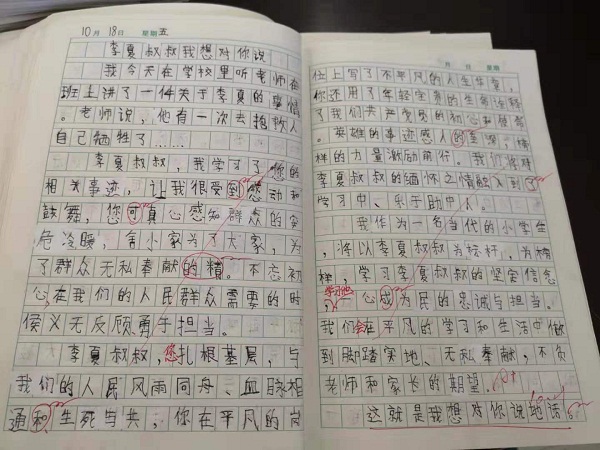 10月18日 星期五
李夏叔叔我想对你说
我今天在学校里听老师在
班上讲了一件关于李夏的事情
。老师说，他有一次去抢救人
自己牺牲了……
李夏叔叔，我学习了您的
相关事迹，让我很受到感动和
鼓舞，您可真心感知群众的安
危冷暖，舍小家为了大家，为
了群众无私奉献的精。不忘初
心在我们的人民群众需要的时
候义无反顾勇于担当。
李夏叔叔，您扎根基层，与
我们的人民风雨同舟、血脉相
通和生死与共，你在平凡的岗
月 日 星期
位上写了不平凡的人生华章，
你还用了年轻宝贵的生命诠释
了我们共产党员的初心和使命
。英雄的事迹感人的至深，榜
样的力量激励前行。我们将对
李夏叔叔的缅怀之情融入到了
学习中、乐于助中人。
我作为一名当代的小学生
，将以李夏叔叔为标杆，为榜
样，学习李夏叔叔的坚定信念
学习他
，心感为民的忠诚与担当。
我们会在平凡的学习和生活中做
到脚踏实地、无私奉献，不负
老师和家长的期望。
这就是我想对你说地话。